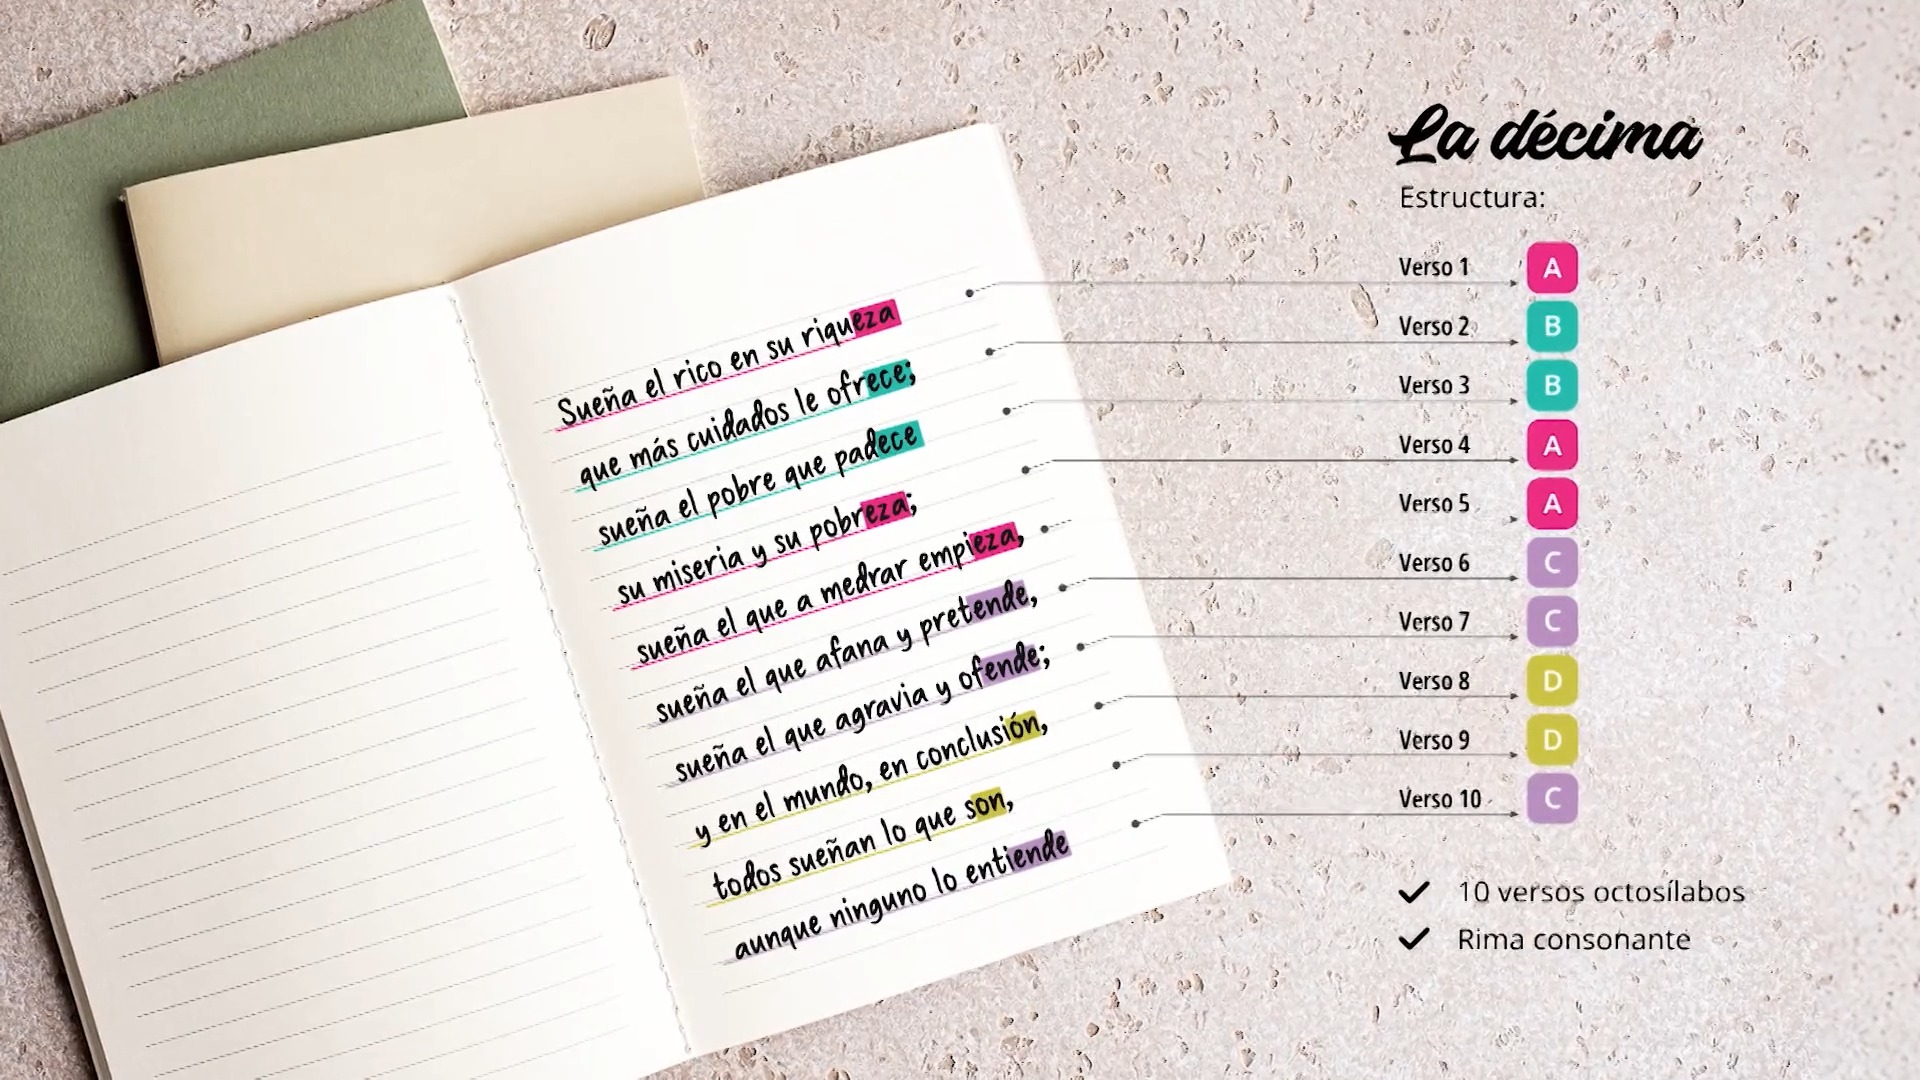 Sueña el rico en su riqueza
que más cuidados le ofrece;
sueña el pobre que padece
su miseria y su pobreza;
sueña el que a medrar empieza,
sueña el que afana y pretende,
sueña el que agravia y ofende;
y en el mundo, en conclusión,
todos sueñan lo que son,
aunque ninguno lo entiende
La décima
Estructura:
Verso 1 A
Verso 2 B
Verso 3 B
Verso 4 A
Verso 5 A
Verso 6 C
Verso 7 C
Verso 8 D
Verso 9 D
Verso 10 C
10 versos octosílabos
Rima consonante